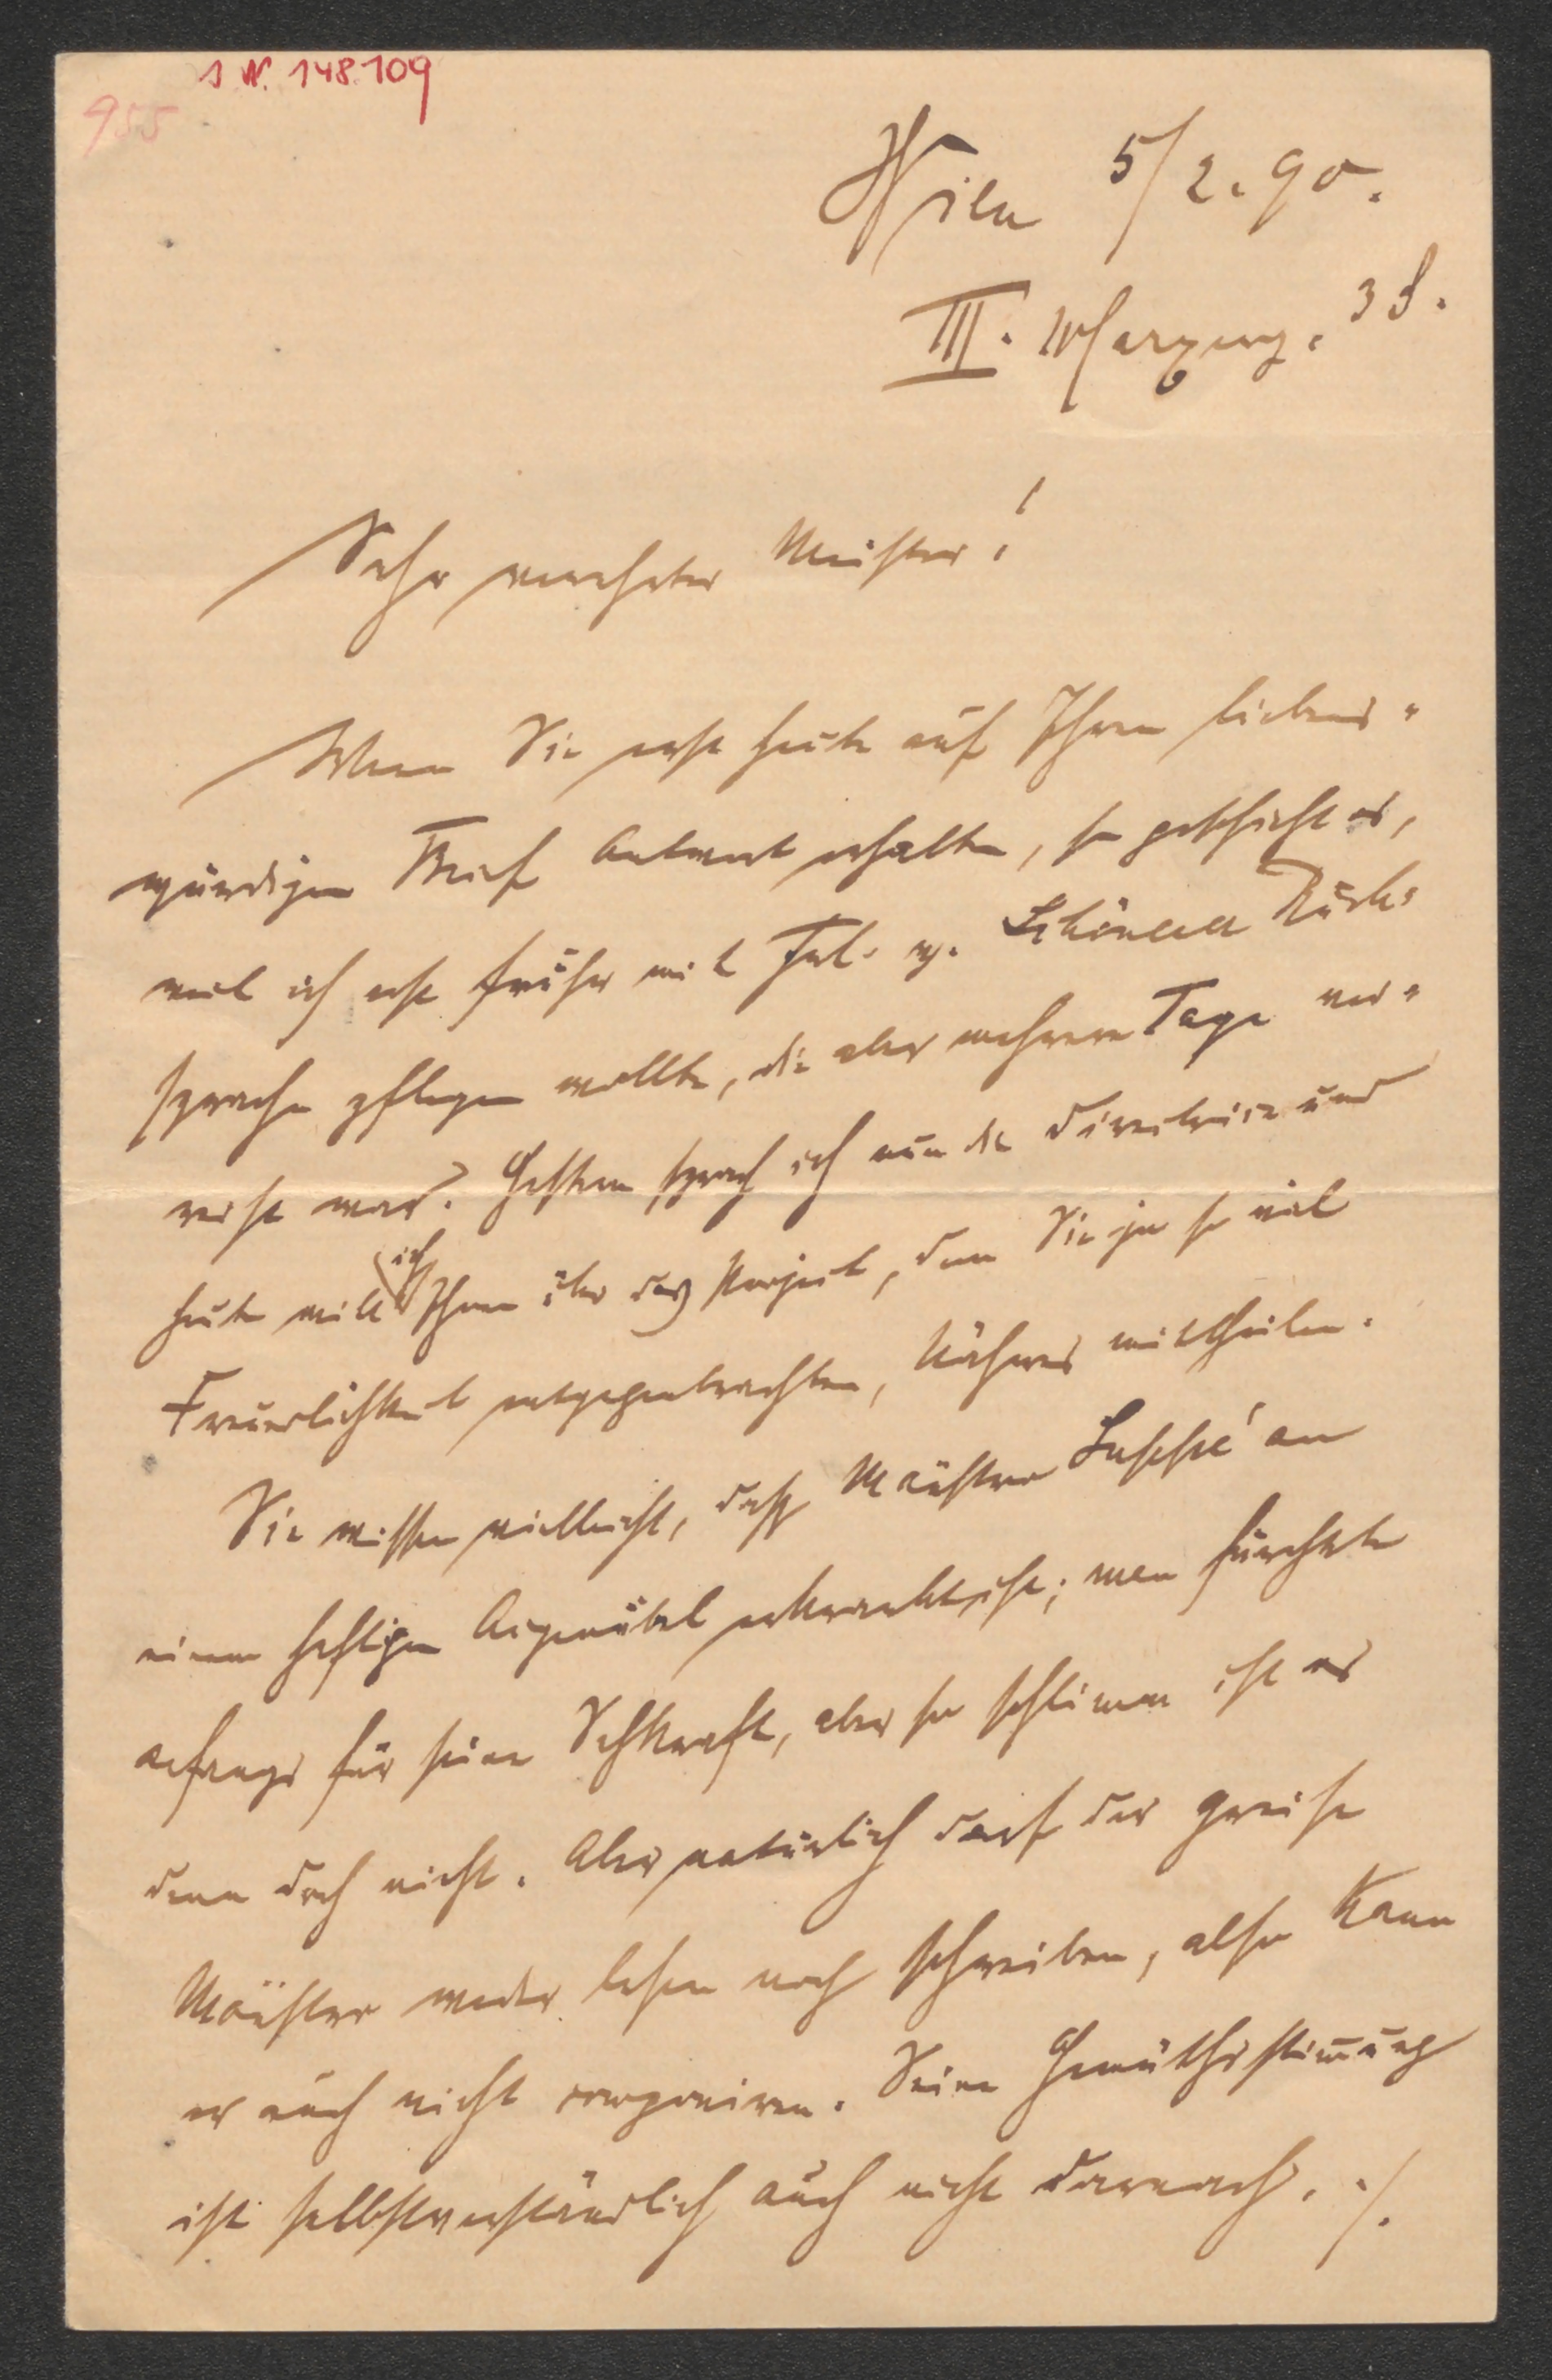 1 N. 148.109
955
Wien 5/2. 90.
III. 38.
Sehr verehrter Meister!
Wenn Sie erst heute auf Ihren liebens-
würdigen Brief Antwort erhalten, so geschieht es,
weil ich erst früher mit Frl. v. Schönerer Rück-
sprache pflegen wollte, die aber mehrere Tage ver-
reist war. Gestern sprach ich nun die Directrice und
heute will ich Ihnen über das Project, dem Sie ja so viel
Freundlichkeit entgegenbrachten, Näheres mittheilen.
Sie wissen vielleicht, daß Maëstro Suppé an
einem heftigen Augenübel erkrankt ist; man fürchtete
anfangs für seine Sehkraft, aber so schlimm ist es
denn doch nicht. Aber natürlich darf der greise
Maëstro weder lesen noch schreiben, also kann
er auch nicht componiren. Seine Gemüthsstimmung
ist selbstverständlich auch nicht darnach. ./.